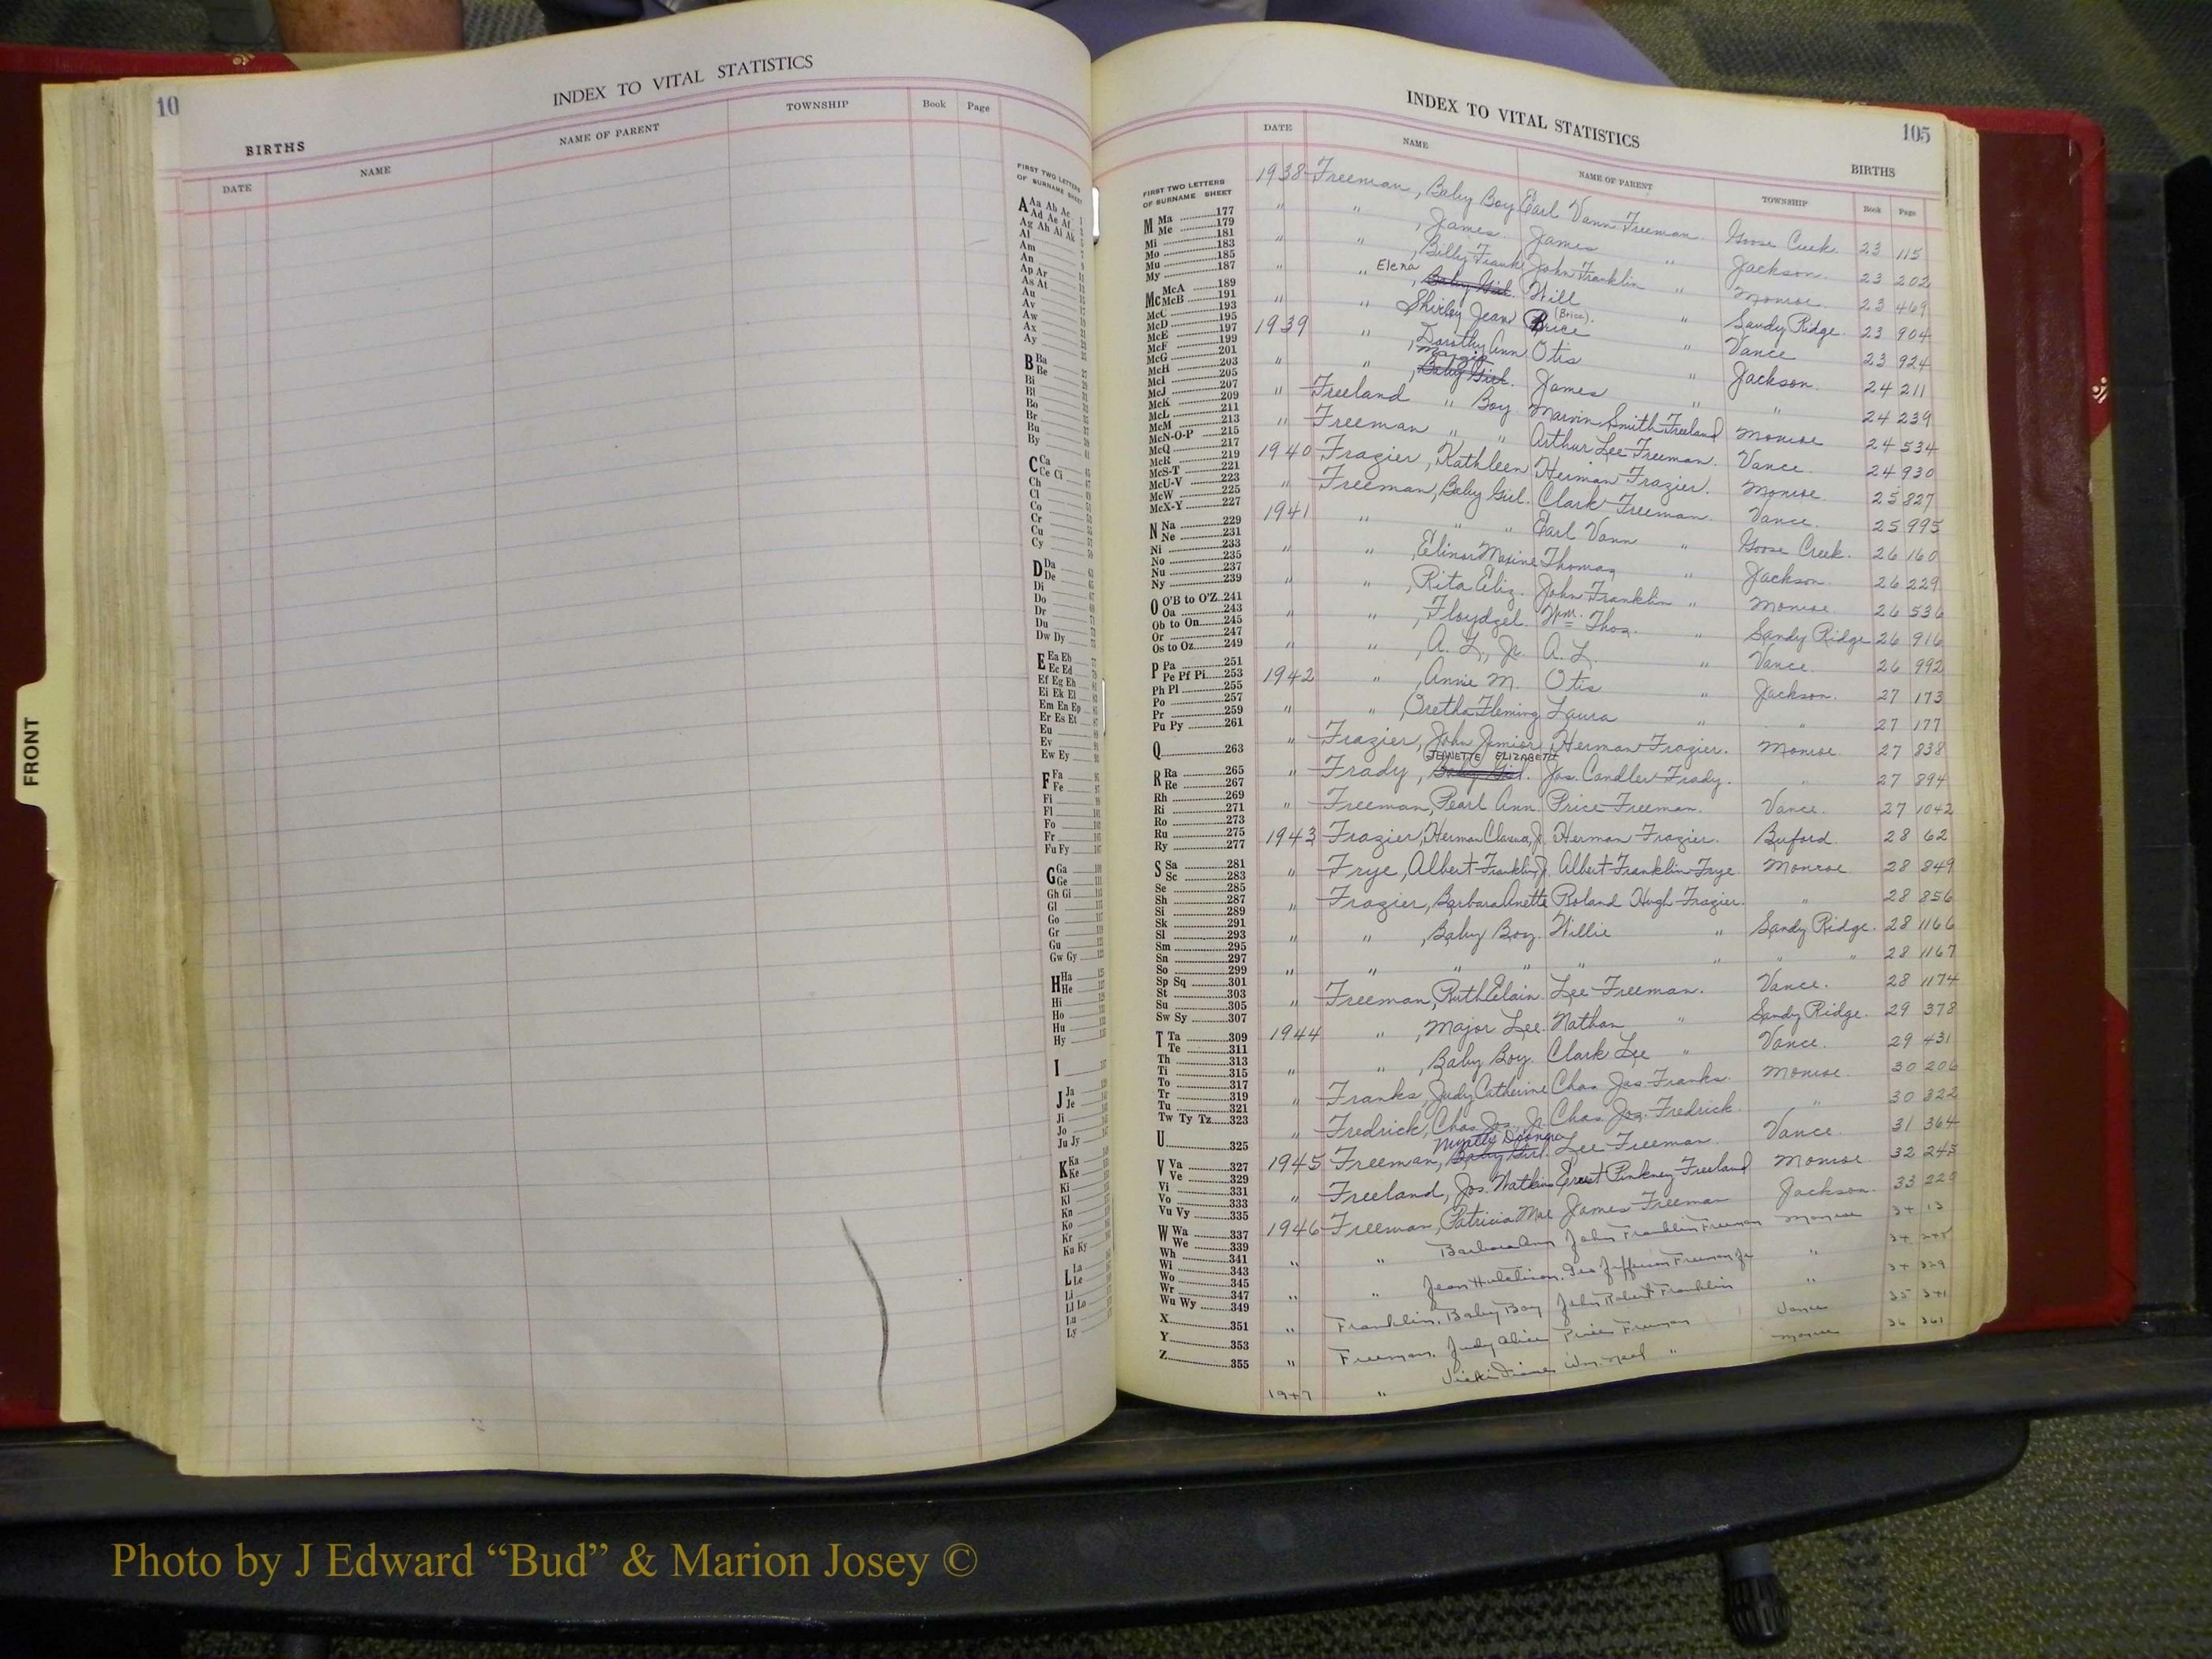 10
INDEX TO VITAL STATISTICS
BIRTHS
DATE NAME NAME OF PARENT TOWNSHIP Book Page
FIRST TWO LETTERS
OF SURNAME SHEET
A Aa Ab Ac
Ad Ae Af
Ag Ah Ai Ak
Al
Am
An
Ap Ar
As At
Au
Av
Aw
Ax
Ay
B Ba
Be
Bi
Bl
Bo
Br
Bu
By
C Ca
Ce Ci
Ch
Cl
Co
Cr
Cu
Cy
D Da
De
Di
Do
Dr
Du
Dw Dy
E Ea Eb
Ec Ed
Ef Eg Eh
Ei Ek El
Em En Ep
Er Es Et
Eu
Ev
Ew Ey
F Fa
Fe
Fi
Fl
Fo
Fr
Fu Fy
G Ga
Ge
Gh Gi
Gl
Go
Gr
Gu
Gw Gy
H Ha
He
Hi
Ho
Hu
Hy
I
J Ja
Je
Ji
Jo
Ju Jy
K Ka
Ke
Ki
Kl
Kn
Ko
Kr
Ku Ky
L La
Le
Li
Ll Lo
Lu
Ly
FRONT
INDEX TO VITAL STATISTICS
105
BIRTHS
DATE NAME NAME OF PARENT TOWNSHIP Book Page
FIRST TWO LETTERS
OF SURNAME SHEET
M Ma 177
Me 179
Mi 181
Mo 183
Mu 185
My 187
Mc McA 189
McB 191
McC 193
McD 195
McE 197
McF 199
McG 201
McH 203
McI 205
McJ 207
McK 209
McL 211
McM 213
McN-O-P 215
McQ 217
McR 219
McS-T 221
McU-V 223
McW 225
McX-Y 227
N Na 229
Ne 231
Ni 233
No 235
Nu 237
Ny 239
O O'B to O'Z 241
Oa 243
Ob to On 245
Or 247
Os to Oz 249
P Pa 251
Pe Pf Pi 253
Ph Pl 255
Po 257
Pr 259
Pu Py 261
Q 263
R Ra 265
Re 267
Rh 269
Ri 271
Ro 273
Ru 275
Ry 277
S Sa 281
Sc 283
Se 285
Sh 287
Si 289
Sk 291
Sl 293
Sm 295
Sn 297
So 299
Sp Sq 301
St 303
Su 305
Sw Sy 307
T Ta 309
Te 311
Th 313
Ti 315
To 317
Tr 319
Tu 321
Tw Ty Tz 323
U 325
V Va 327
Ve 329
Vi 331
Vo 333
Vu Vy 335
W Wa 337
We 339
Wh 341
Wi 343
Wo 345
Wr 347
Wu Wy 349
X 351
Y 353
Z 355
1938 Freeman, Baby Boy Earl Vann Freeman Goose Creek 23 115
" " , James James " Jackson 23 202
" " , Billy Frank John Franklin " Monroe 23 469
" " Elena , Baby Girl Will " Sandy Ridge 23 904
" " Shirley Jean Brice (Brice) " Vance 23 924
1939 " , Dorothy Ann Otis " Jackson 24 211
" " , Baby Girl James " " 24 239
" Freeland " Boy Marvin Smith Freeland Monroe 24 534
" Freeman " " Arthur Lee Freeman Vance 24 930
1940 Frazier, Kathleen Herman Frazier Monroe 25 827
" Freeman, Baby Girl Clark Freeman Vance 25 995
1941 " " " Earl Vann " Goose Creek 26 160
" " , Elinor Maxine Thomas " Jackson 26 229
" " , Rita Eliz. John Franklin " Monroe 26 536
" " , Floydzel Wm. Thos. " Sandy Ridge 26 916
" " , A. L., Jr. A. L. " Vance 26 992
1942 " , Annie M. Otis " Jackson 27 173
" " , Oretha Fleming Laura " " 27 177
" Frazier, John Junior Herman Frazier Monroe 27 838
JEANETTE ELIZABETH
" Frady, Baby Girl Jos. Candler Frady " 27 894
" Freeman, Pearl Ann Price Freeman Vance 27 1042
1943 Frazier, Herman Clarence, Jr. Herman Frazier Buford 28 62
" Frye, Albert Franklin Jr. Albert Franklin Frye Monroe 28 849
" Frazier, Barbara Anette Roland Hugh Frazier " 28 856
" " , Baby Boy Willie " Sandy Ridge 28 1166
" " " " " " " " 28 1167
" Freeman, Ruth Elain Lee Freeman Vance 28 1174
1944 " , Major Lee Nathan " Sandy Ridge 29 378
" " , Baby Boy Clark Lee " Vance 29 431
" Franks, Judy Catherine Chas Jas Franks Monroe 30 206
" Fredrick, Chas. Jos., Jr. Chas. Jos. Fredrick " 30 322
1945 Freeman, Baby Girl Lee Freeman Vance 31 364
" Freeland, Jos. Watkins Ernest Pinkney Freeland Monroe 32 245
1946 Freeman, Patricia Mae James Freeman Jackson 33 229
" " Barbara Ann John Franklin Freeman Monroe 34 13
" " Jean Hutchison Geo Jefferson Freeman Jr " 34 245
" Franklin, Baby Boy John Robert Franklin " 34 329
" Freeman, Judy Alice Price Freeman Vance 35 341
1947 " Vicki Diane Wm. Neal " Monroe 36 361
Photo by J Edward “Bud” & Marion Josey ©